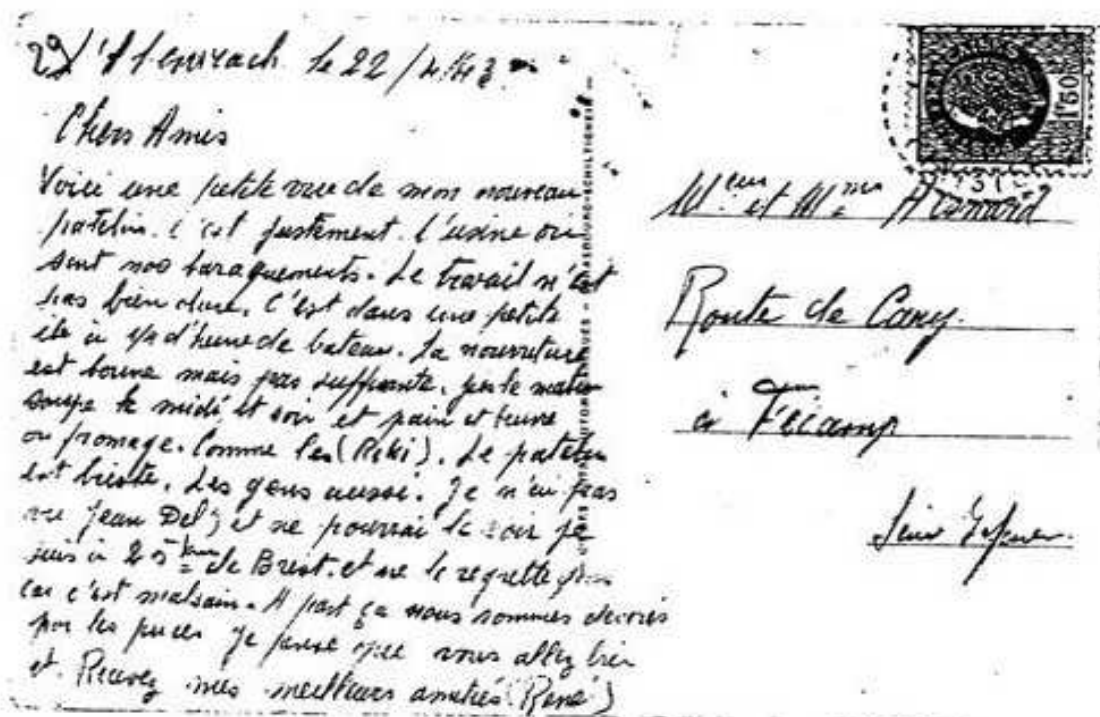 le 22/4/43
Chers Amis
Voici une petite vue de mon nouveau
patelin. C'est justement l'usine où
sont nos baraquements. Le travail n'est
pas bien dur. C'est dans une petite
île à 1/4 d'heure de bateau. La nourriture
est bonne mais pas suffisante. jus le matin
soupe le midi et soir et pain et beurre
ou fromage. Comme les
Le patelin
est triste. Les gens aussi. Je n'ai pas
vu Jean et ne pourrai le voir je
suis à 25 km de Brest. et ne le regrette pas
car c'est malsain. A part ça nous sommes dévorés
par les puces je pense que vous allez bien
et Recevez mes meilleurs amitiés (René)
1F50
Route de Cany.
à Fécamp
Seine Infer